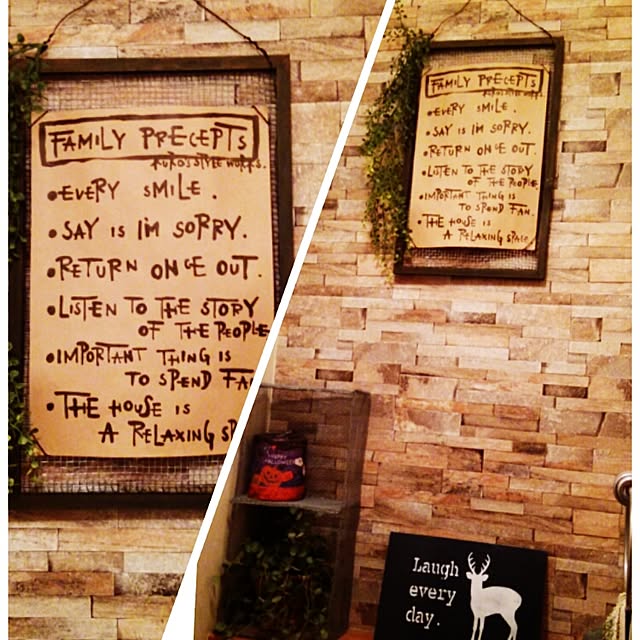 FAMILY PRECEPTS
KURO'S STYLE WORKS.
•EVERY SMILE.
•SAY IS I'M SORRY.
•RETURN ONCE OUT.
•LISTEN TO THE STORY
OF THE PEOPLE
•IMPORTANT THING IS
TO SPEND FA
•THE HOUSE IS
A RELAXING SP
FAMILY PRECEPTS
•EVERY SMILE.
•SAY IS I'M SORRY.
•RETURN ONCE OUT.
•LISTEN TO THE STORY
OF THE PEOPLE
•IMPORTANT THING IS
TO SPEND FAN.
•THE HOUSE IS
A RELAXING SPACE
HAPPY
HALLOWEEN
Laugh
every
day.